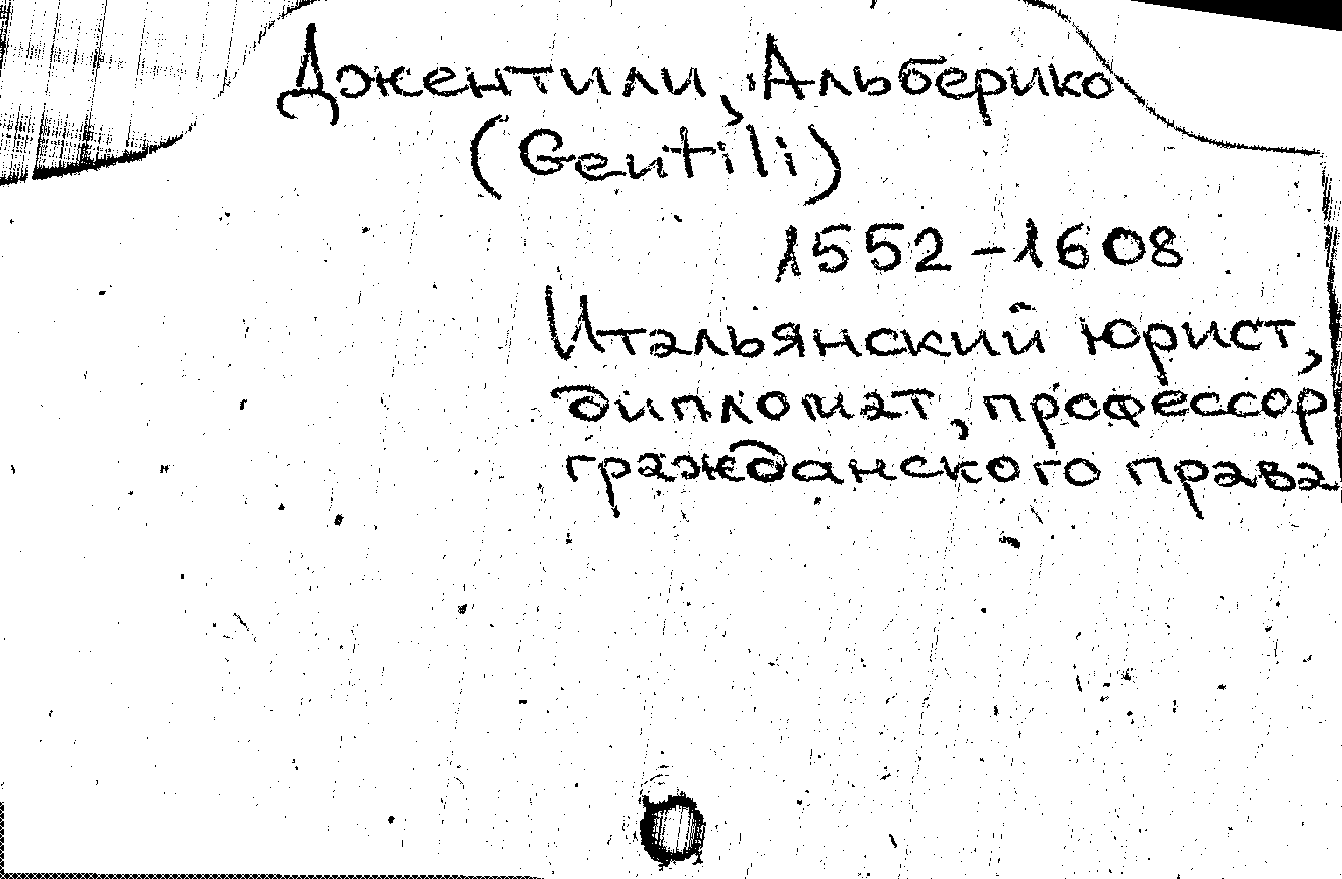 Джентили, Альберико
(Gentili)
1552-1608
Итальянский юрист,
дипломат, профессор
гражданского права